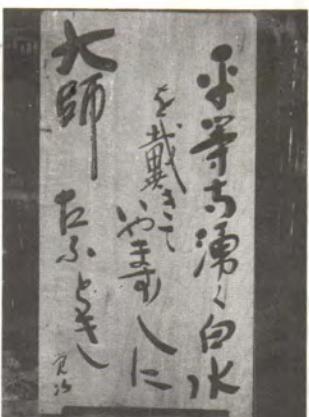 平等寺湧く白水
を戴きて
いやますしに
大師
たふとき